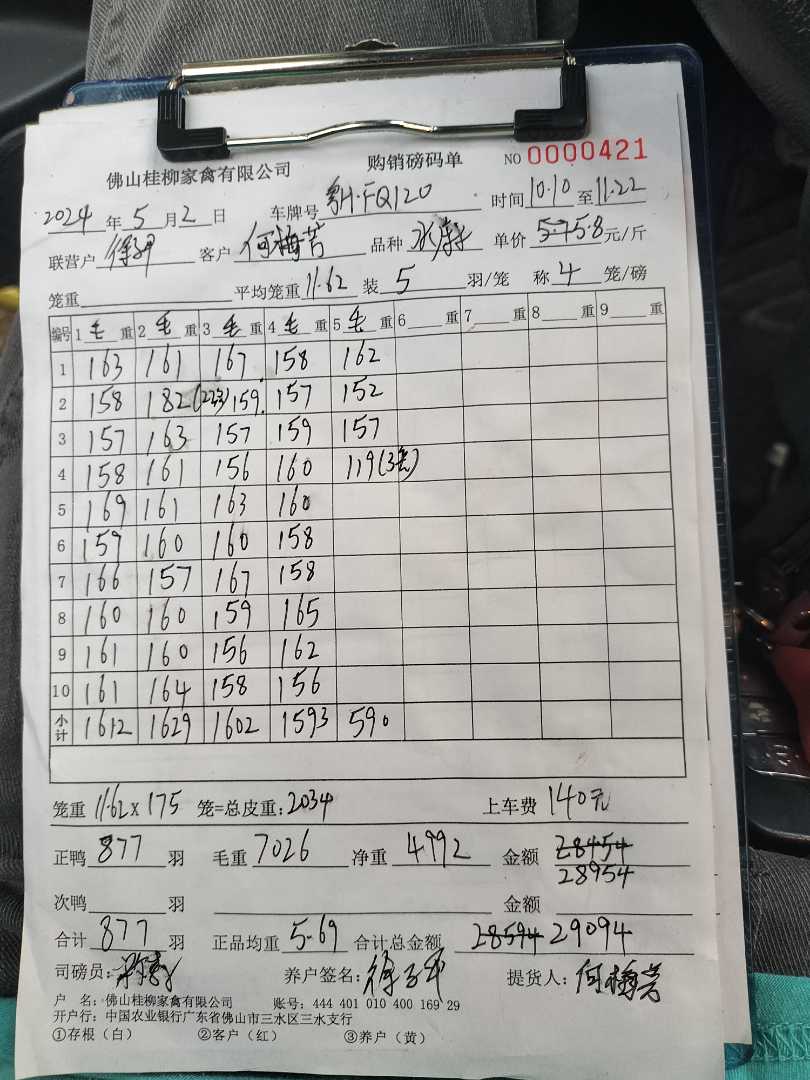 佛山桂柳家禽有限公司 购销磅码单 NO 0000421
2024 年 5 月 2 日 车牌号 粤H·FQ120 时间 10.10 至 11.22
联营户 客户 何梅芳 品种 单价 5.7 5.8 元/斤
笼重 平均笼重 11.62 装 5 羽/笼 称 4 笼/磅
编号 1 毛 重 2 毛 重 3 毛 重 4 毛 重 5 毛 重 6 重 7 重 8 重 9 重
1 163 161 167 158 162
2 158 182 159 157 152
3 157 163 157 159 157
4 158 161 156 160 119(3笼)
5 169 161 163 160
6 159 160 160 158
7 166 157 167 158
8 160 160 159 165
9 161 160 156 162
10 161 164 158 156
小计 1612 1629 1602 1593 590
笼重 11.62×175 笼=总皮重: 2034 上车费 140元
正鸭 877 羽 毛重 7026 净重 4992 金额 28454
28954
次鸭 羽 金额
合计 877 羽 正品均重 5.69 合计总金额 28594 29094
司磅员: 养户签名: 提货人: 何梅芳
户 名: 佛山桂柳家禽有限公司 账号: 444 401 010 400 169 29
开户行: 中国农业银行广东省佛山市三水区三水支行
①存根(白) ②客户(红) ③养户(黄)